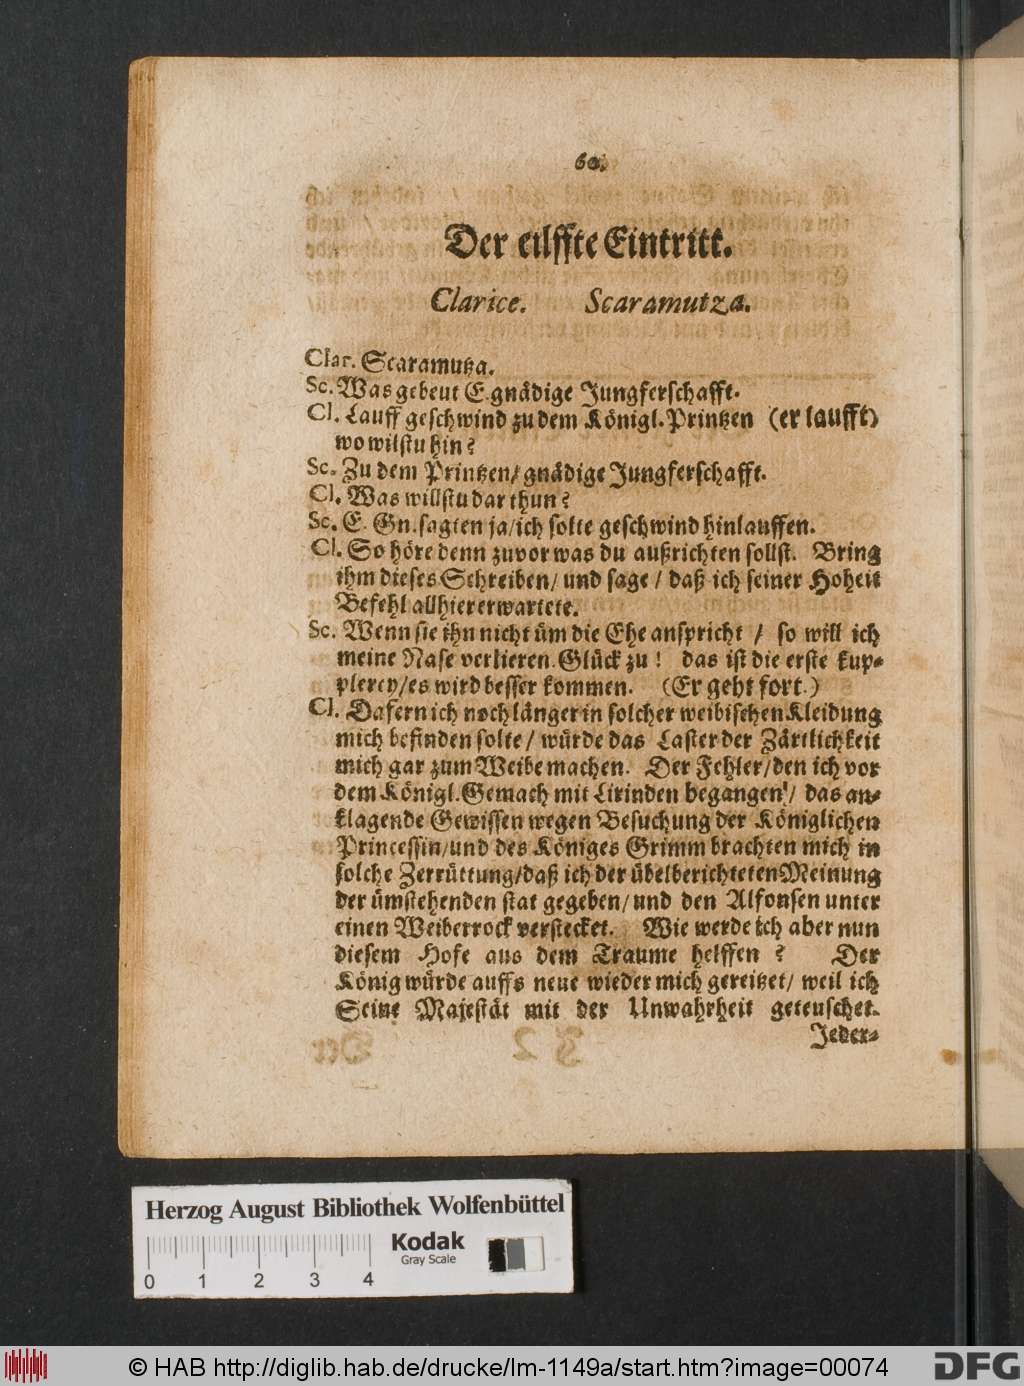 60.
Der eilffte Eintritt.
Clarice. Scaramutza.
Clar. Scaramutza.
Sc. Was gebeut E. gnädige Jungferschafft.
Cl. Lauff geschwind zu dem Königl. Printzen (er laufft)
wo wilstu hin?
Sc. Zu dem Printzen/ gnädige Jungferschafft.
Cl. Was willstu dar thun?
Sc. E. Gn. sagten ja/ ich solte geschwind hinlauffen.
Cl. So höre denn zuvor was du außrichten sollst. Bring
ihm dieses Schreiben/ und sage / daß ich seiner Hoheit
Befehl allhier erwartete.
Sc. Wenn sie ihn nicht üm die Ehe anspricht / so will ich
meine Nase verlieren. Glück zu! das ist die erste kup-
plerey/ es wird besser kommen. (Er geht fort.)
Cl. Dafern ich noch länger in solcher weibischen Kleidung
mich befinden solte/ würde das Laster der Zärtlichkeit
mich gar zum Weibe machen. Der Fehler/ den ich vor
dem Königl. Gemach mit Lirinden begangen/ das an-
klagende Gewissen wegen Besuchung der Königlichen
Princessin/ und des Königes Grimm brachten mich in
solche Zerrüttung/ daß ich der übelberichteten Meinung
der ümstehenden stat gegeben/ und den Alfonsen unter
einen Weiberrock verstecket. Wie werde ich aber nun
diesem Hofe aus dem Traume helffen? Der
König würde auffs neue wieder mich gereitzet/ weil ich
Seine Majestät mit der Unwahrheit geteuschet.
Jeder-
Herzog August Bibliothek Wolfenbüttel
Kodak
Gray Scale
0 1 2 3 4
© HAB http://diglib.hab.de/drucke/lm-1149a/start.htm?image=00074
DFG